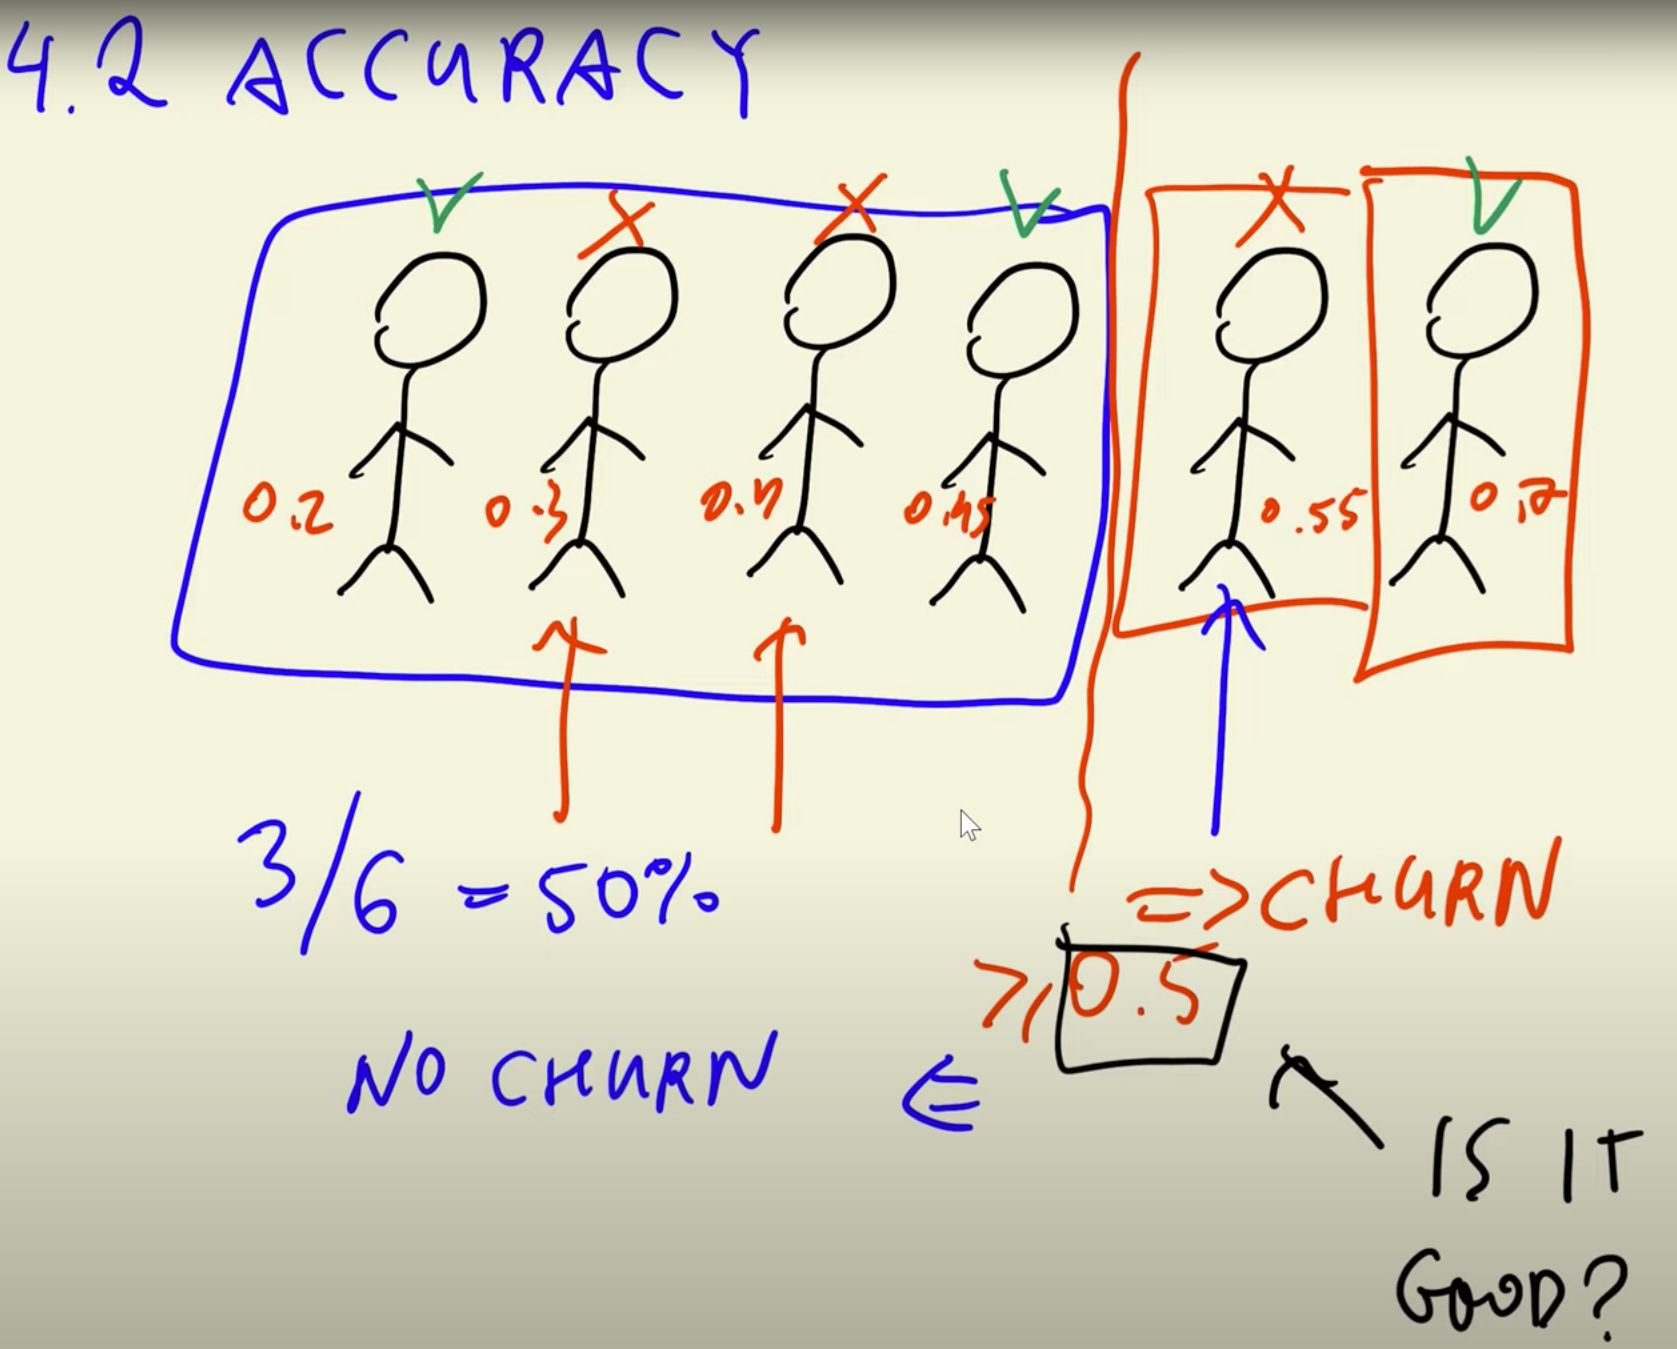 4.2 ACCURACY
0.2 0.3 0.4 0.45 0.55 0.7
3/6 = 50%
=> CHURN
≥ 0.5
NO CHURN <=
IS IT
GOOD?